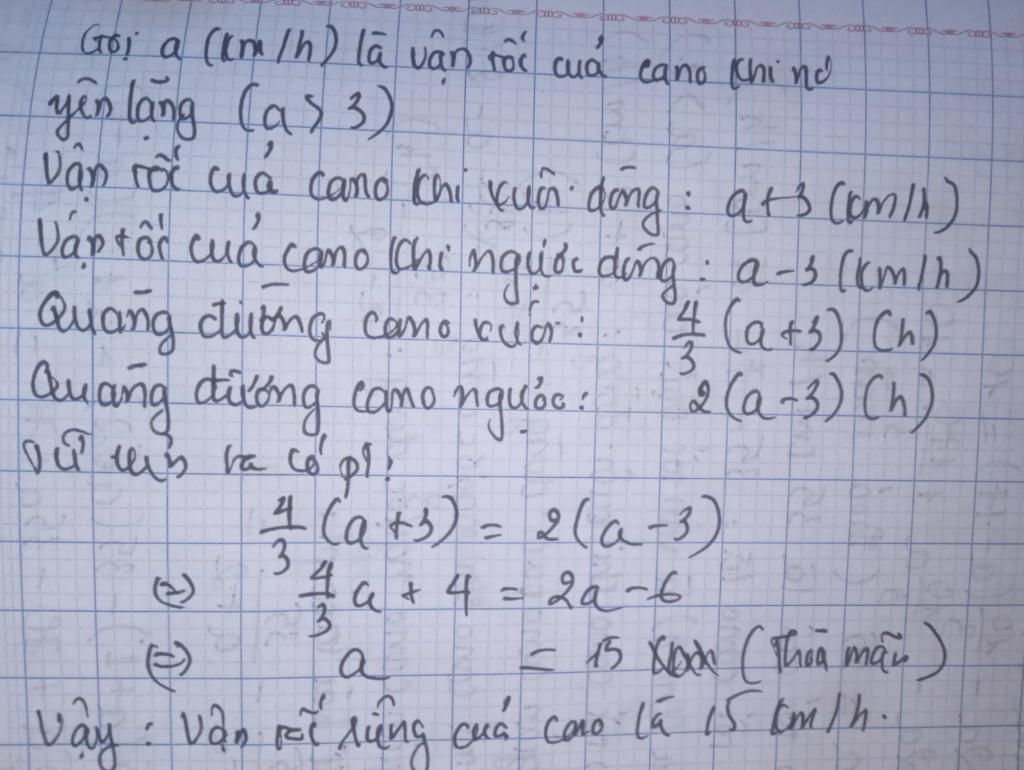 Gọi a (km/h) là vận tốc cuả cano khi nó
yên lặng (a > 3)
Vận tốc cuả cano khi xuôi dòng : a+3 (km/h)
Vận tốc cuả cano khi ngược dòng : a-3 (km/h)
Quãng đường cano xuôi : 4/3 (a+3) (h)
Quãng đường cano ngược : 2(a-3) (h)
ta có pt:
4/3 (a+3) = 2(a-3)
(=) 4/3 a + 4 = 2a-6
(=) a = 15 (Thoã mãn)
Vậy : Vận tốc riêng cuả cano là 15 km/h.